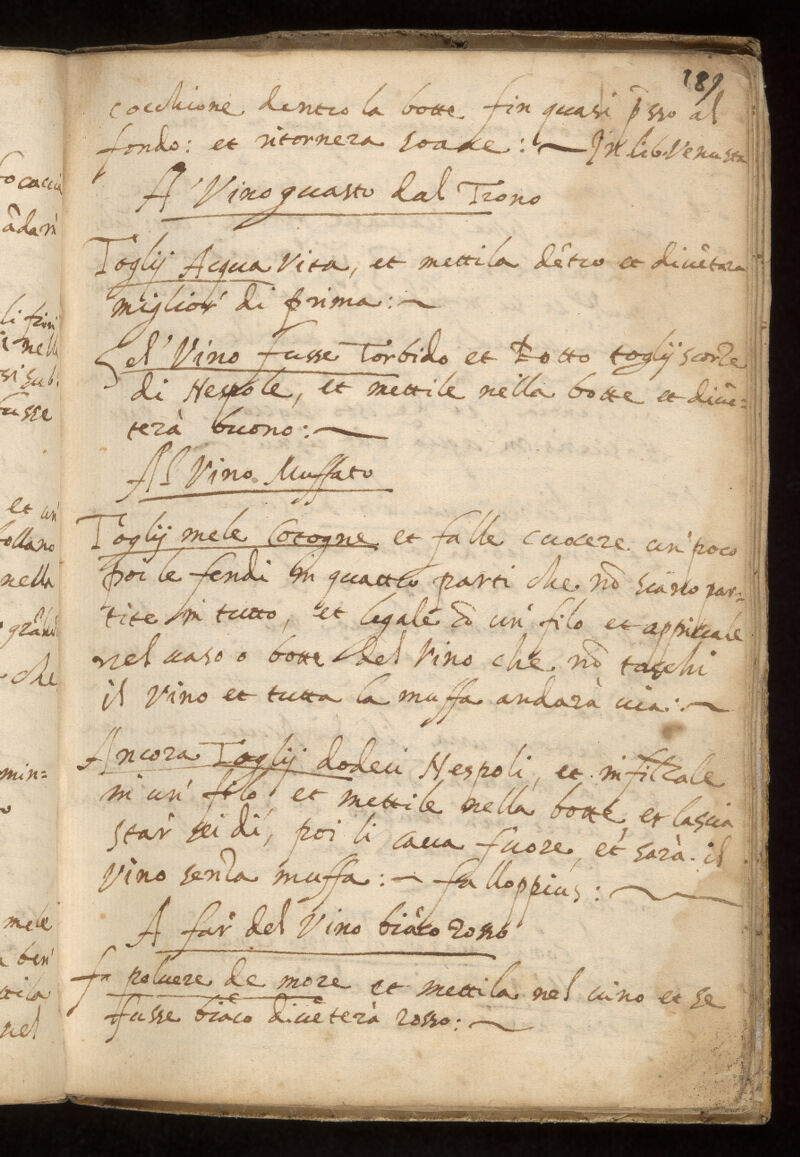 189
cocchione dentro la botte fin quasi p̄sso al
fondo: et ritornera soaue: In lib Venusta
A' Vino guasto dal Trono
Toglij Acqua Vita, et mettila dẽtro et diuẽtara
miglior' di prima:
el' Vino fusse Torbido et Rotto toglij scorze
di Nespole, et mettile nella botte et diuẽ=
terà buono:
Al Vino Muffato
Toglij mele Cotogne et falle cuocere un' poco
poi le fendi in quattro parti che nõ siano par=
tite in tutto, et legale cõ un' filo et appiccale
nel uaso o botte del Vino che nõ tocchi
il Vino et tutta la muffa andarà uia:
Ancora Toglij dodeci Nespoli, et infilzale
in un' filo et mettile nella botte et lascia
star' sei dì, poi li caua fuore, et sarà il
Vino senza muffa: falloppius:
A far' del Vino biãco rosso
fa poluere de more et mettila nel uino et se
fusse biãco diuẽterà rosso:
focaccia
li frini
nella
fusse
et un'
nella
che
min=
mele
ben'
nel